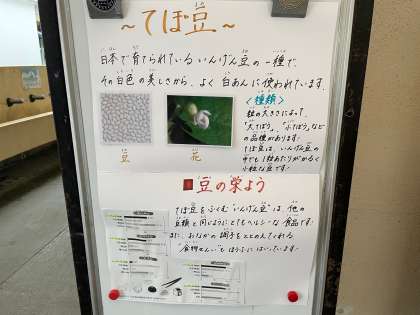 ～てぼ豆～
日本で育てられているいんげん豆の一種で、
その白色の美しさから、よく白あんに使われています。
豆
花
〈種類〉
粒の大きさによって、
"大てぼう"、"小てぼう"などの品種があります。
てぼ豆は、いんげん豆の
中でも1粒あたりがかるく
小粒な豆です。
豆の栄よう
てぼ豆をふくむ"いんげん豆"は、他の
豆類と同じようにとてもヘルシーな食品です。
また、おなかの調子をととのえてくれる
"食物せんい"もほうふにはいっています。